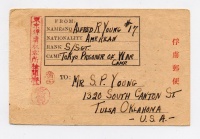 FROM:
NAME ALFRED R YOUNG #17
NATIONALITY AMERICAN
RANK S/SGT.
CAMP TOKYO PRISONER OF WAR CAMP
俘虜郵便
TO: MR S.P. YOUNG
1320 SOUTH CANTON ST
TULSA OKLAHOMA
- U.S.A. -